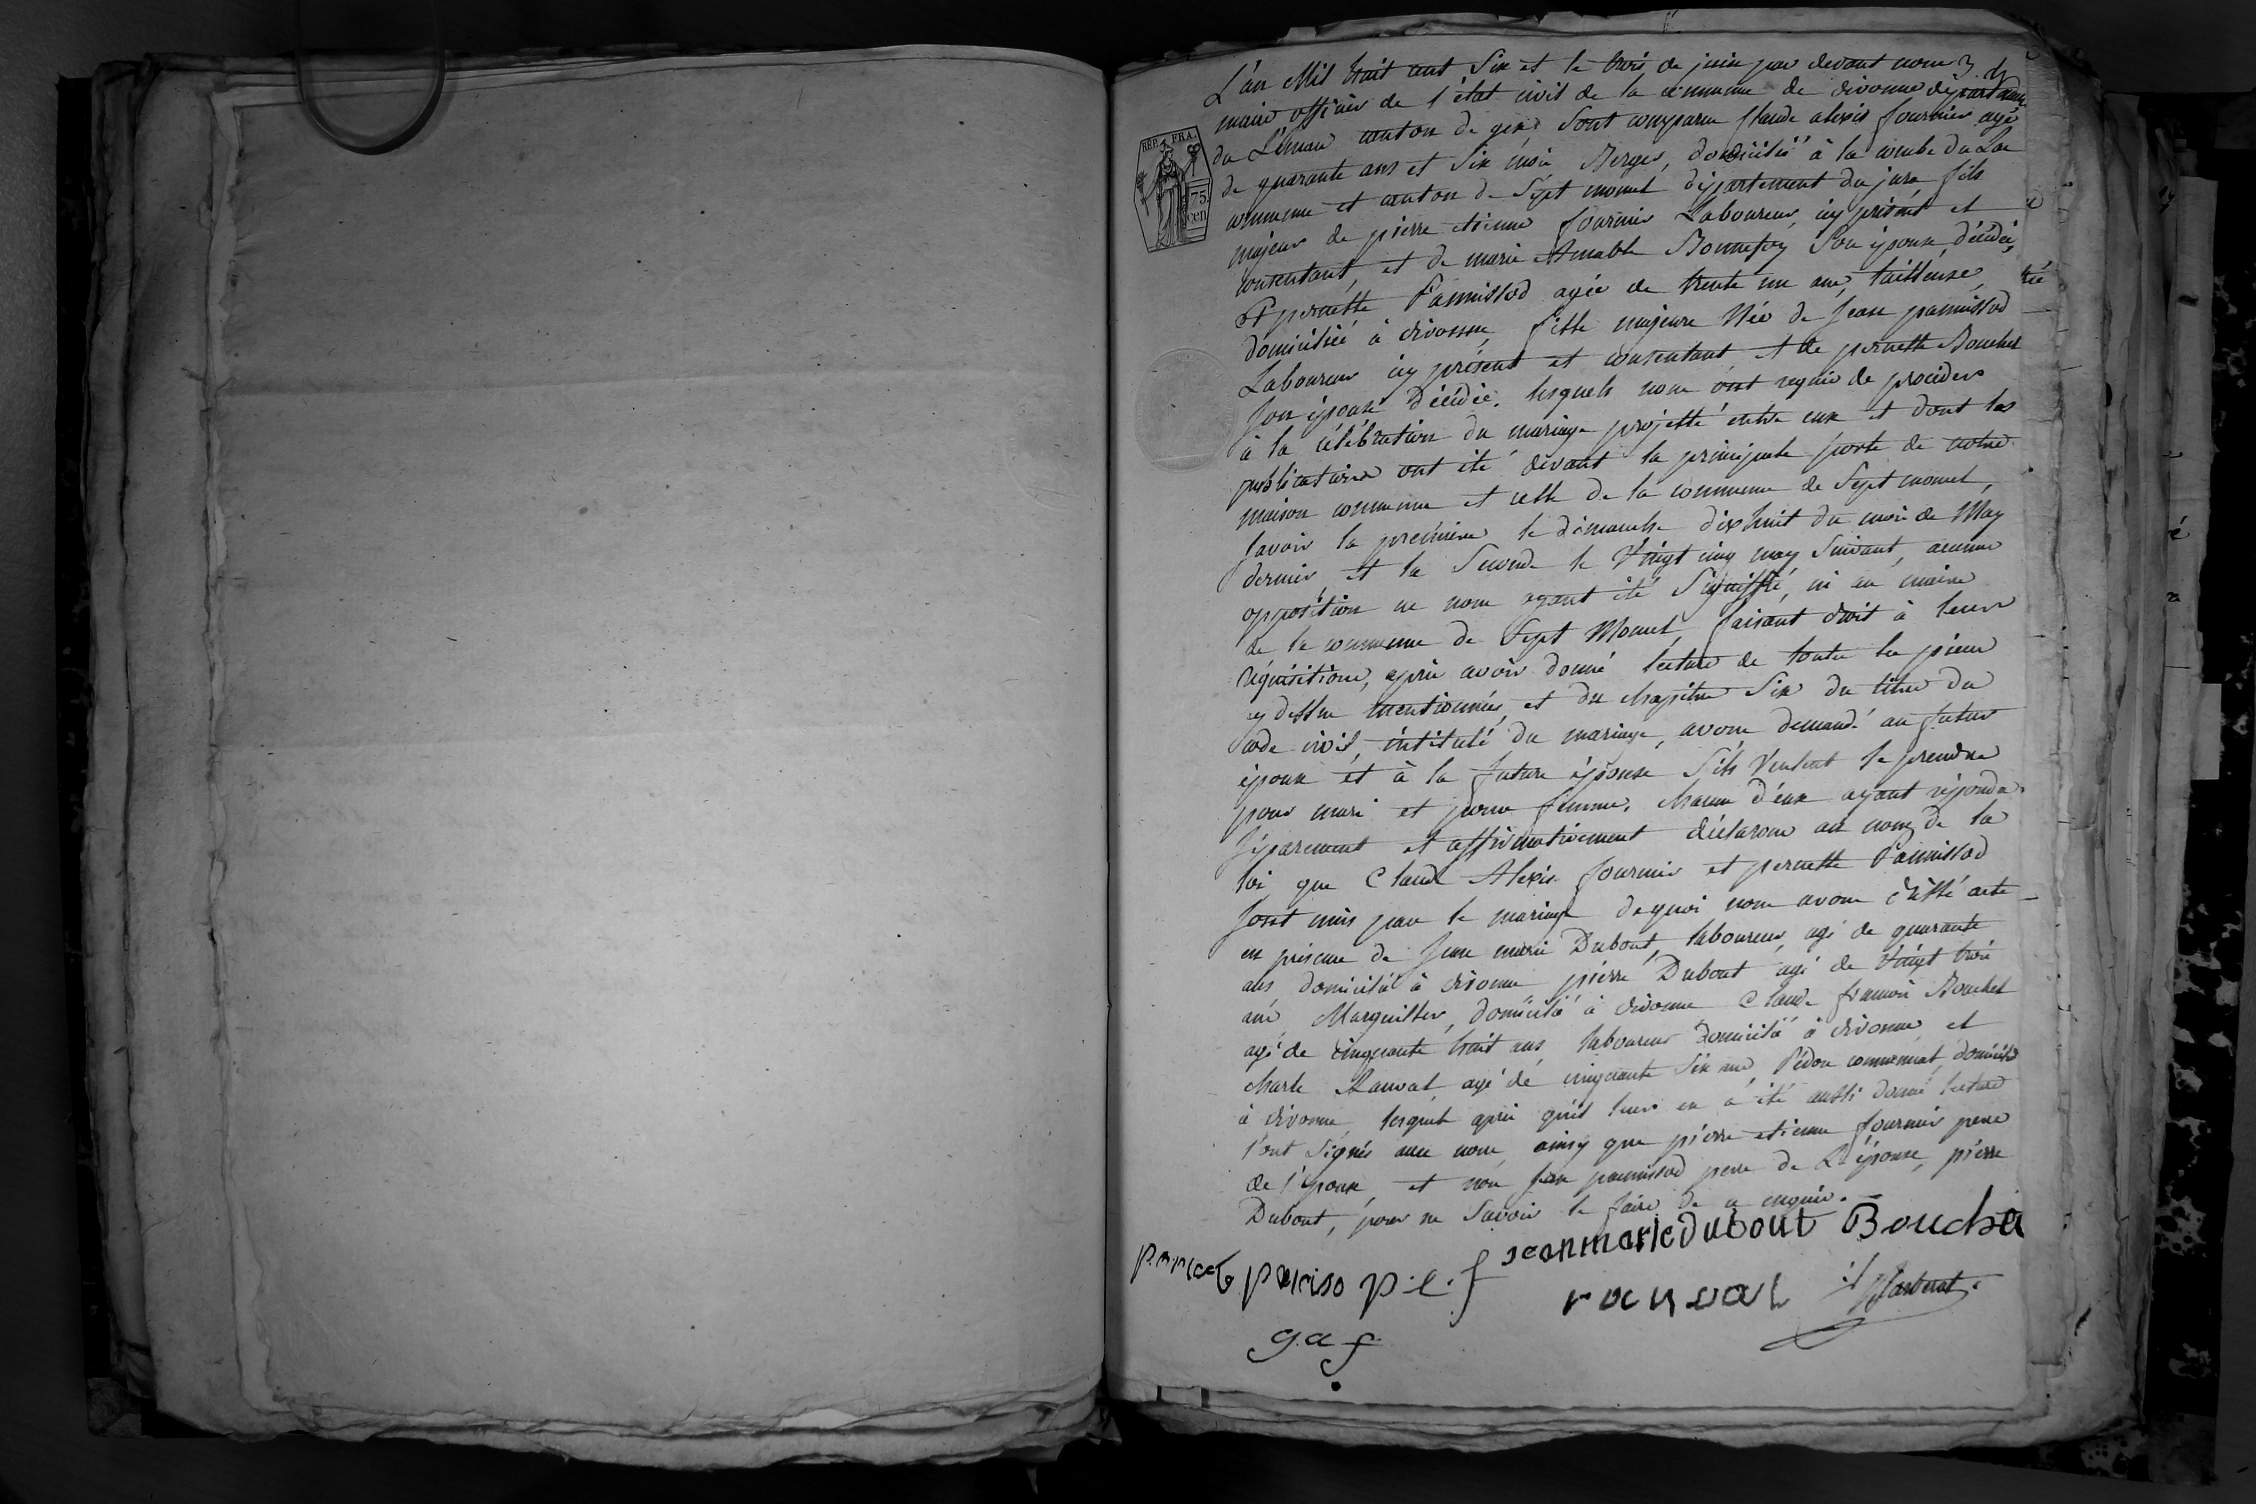 L'an Mil huit cent Six et le trois de juin par devant nous
maire officier de l'état civil de la commune de divonne département
du Léman canton de gex Sont comparu Claude alexis fournier agé
de quarante ans et Six mois Berger, domicilié à la combe du Lac
commune et canton de Sept moncel département du jura fils
majeur de pierre etienne fournier Laboureur icy présent et
consentant, et de marie Amable Bonnefoy Son épouse décédée,
Et pernette Pannissod agée de trente un ans, tailleuse,
domiciliée à divonne, fille majeure Née de Jean pannissod
Laboureur icy présent et consentant et de pernette Bouchet
Son épouse décédée. lesquels nous ont requis de procéder
à la célébration du mariage projetté entre eux et dont les
publications ont été devant la principale porte de notre
maison commune et celle de la commune de Sept moncel,
Savoir la première le dimanche dix huit du mois de May
dernier et la Seconde le Vingt cinq may Suivant, aucune
opposition ne nous ayant été Signiffié, ni au maire
de la commune de Sept Moncel, faisant droit à leurs
réquisitions, après avoir donné lecture de toutes les pièces
cy dessus mentionnées, et du chapitre Six du titre du
Code civil, intitulé du mariage, avons demandé au futur
époux et à la future épouse S'ils Veulent Se prendre
pour mari et pour femme. chacun d'eux ayant répondu
Séparement et affirmativement déclarons au nom de la
loi que Claude Alexis fournier et pernette Pannissod
Sont unis par le mariage dequoi nous avons dressé acte
en présence de Jean marie Dubout, laboureur, agé de quarante
ans domicilié à divonne pierre Dubout agé de Vingt trois
ans Marguiller, domicilié à divonne Claude francois Bouchet
agé de cinquante huit ans laboureur domicilié à divonne, et
charle Ranvat agé de cinquante Six ans, Pédon communal, domicilié
à divonne, lesquels après qu'il leurs en a été aussi donné lecture
l'ont Signés avec nous, ainsy que pierre etienne fournier pere
de l'époux, et non jean pannissod pere de L'épouse, pierre
Dubout, pour ne Savoir le faire de ce enquis.
jeanmarie dubout Bouchet
p. e. f
g. a f